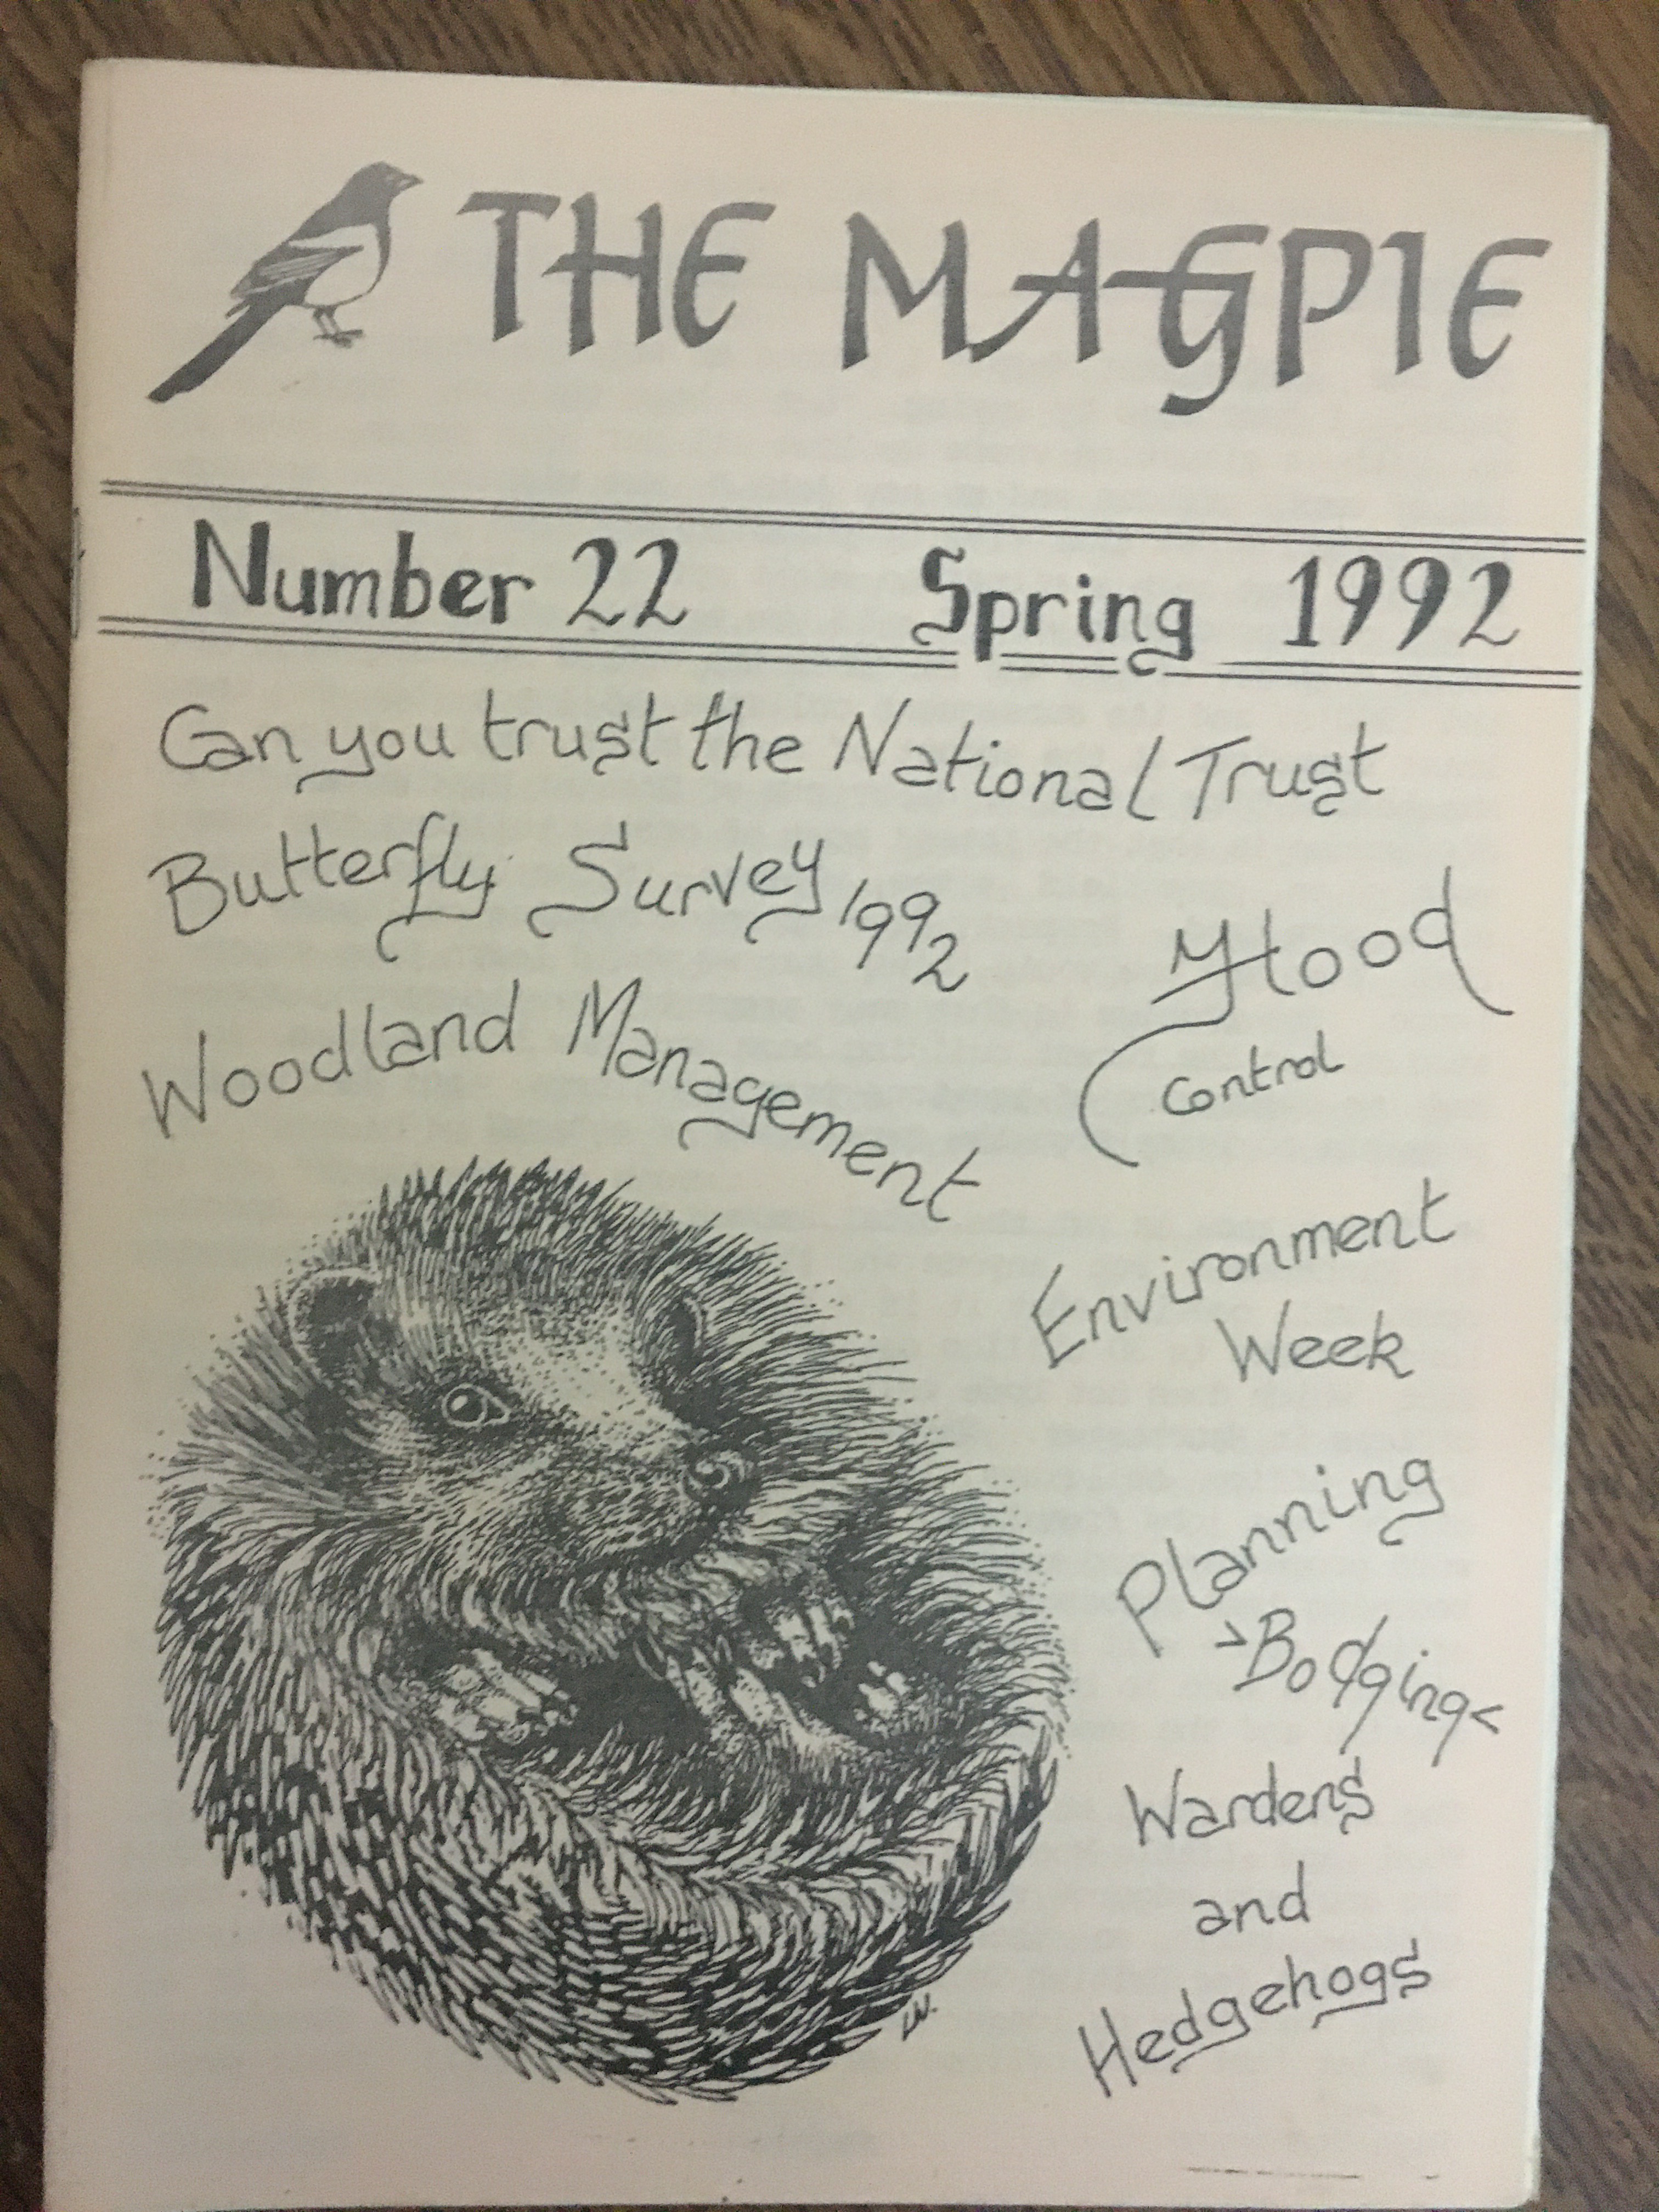 THE MAGPIE
Number 22 Spring 1992
Can you trust the National Trust
Butterfly Survey 1992
Woodland Management
Flood
Control
Environment
Week
Planning
>Bodging<
Wardens
and
Hedgehogs
LW.